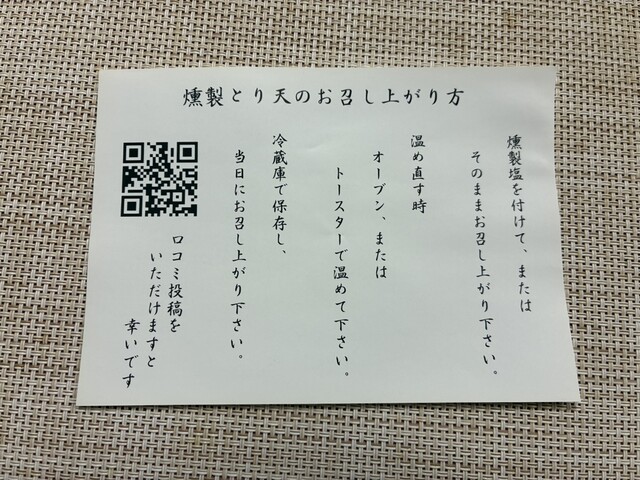 燻製とり天のお召し上がり方
燻製塩を付けて、または
そのままお召し上がり下さい。
温め直す時
オーブン、または
トースターで温めて下さい。
冷蔵庫で保存し、
当日にお召し上がり下さい。
口コミ投稿を
いただけますと
幸いです